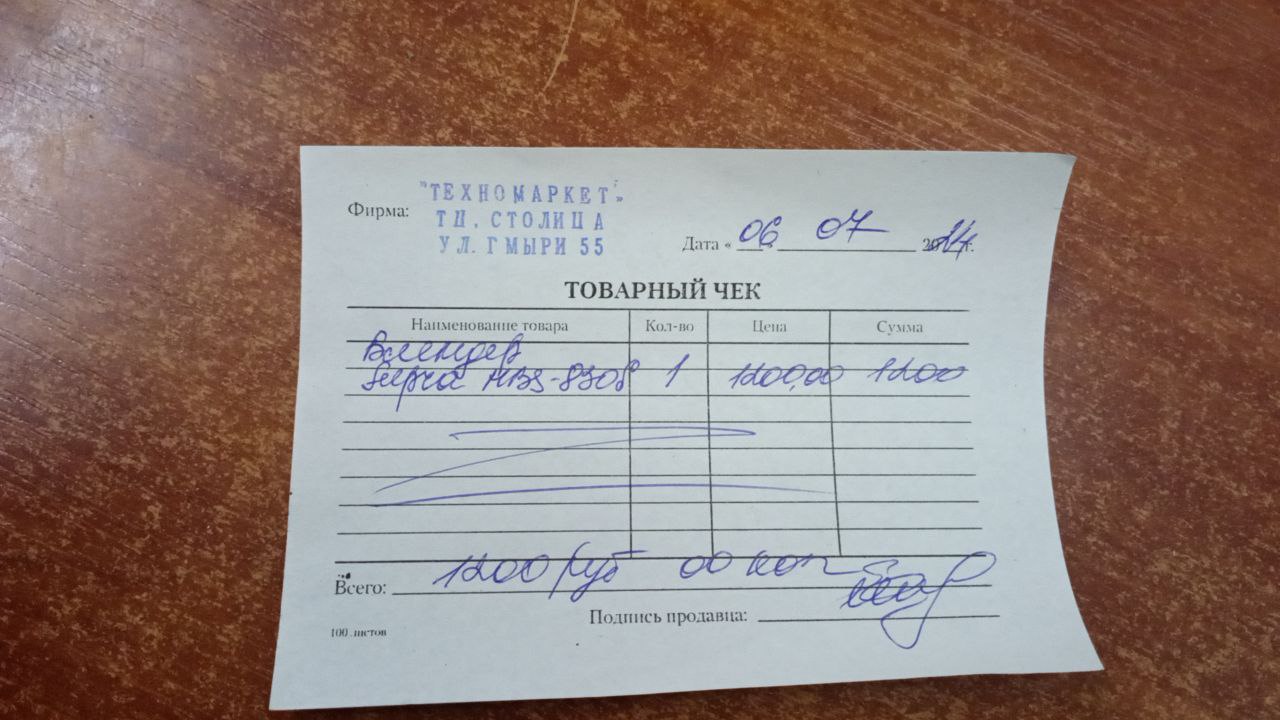 Фирма: "ТЕХНОМАРКЕТ"
ТЦ. СТОЛИЦА
УЛ. ГМЫРИ 55
Дата « 06 » 07 2024 г.
ТОВАРНЫЙ ЧЕК
Наименование товара Кол-во Цена Сумма
Блендер
HBS-8308 1 1200,00 1200
Всего: 1200 руб 00 коп
Подпись продавца:
100 листов